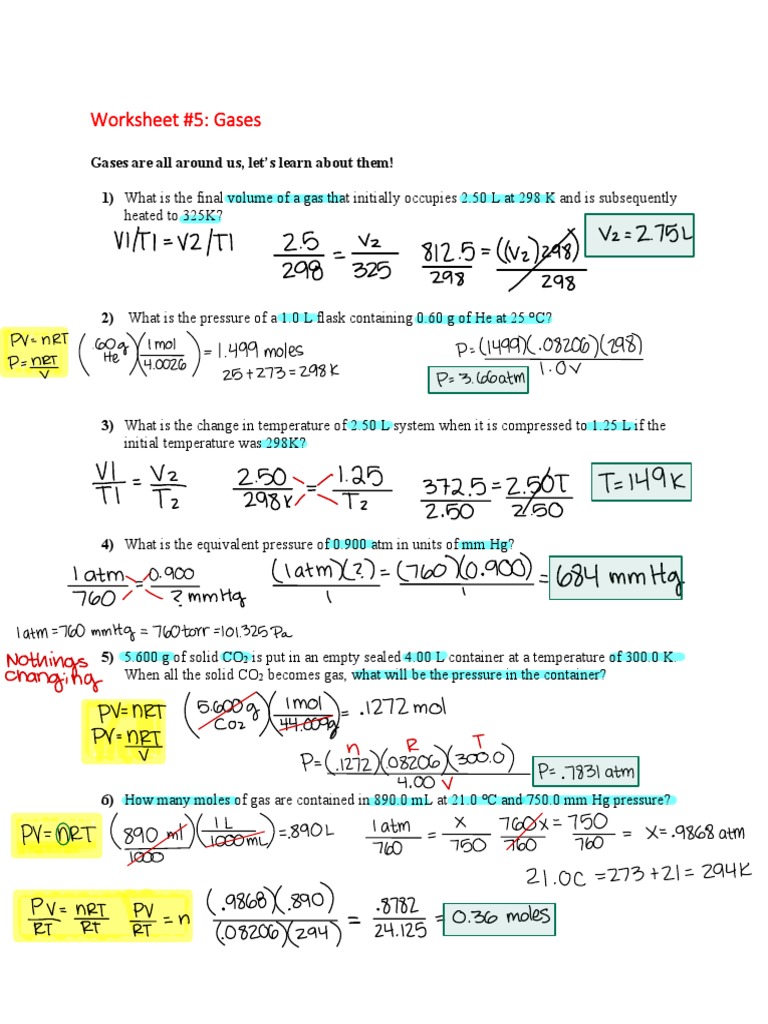 Worksheet #5: Gases
Gases are all around us, let's learn about them!
1) What is the final volume of a gas that initially occupies 2.50 L at 298 K and is subsequently
heated to 325K?
V1/T1 = V2/T1
2.5/298 = V2/325
812.5/298 = ((V2)298)/298
V2 = 2.75L
2) What is the pressure of a 1.0 L flask containing 0.60 g of He at 25 °C?
PV=nRT
P=nRT/V
(.60g He)(1mol/4.0026) = 1.499 moles
25+273=298K
P=(1499)(.08206)(298)/1.0V
P=3.66atm
3) What is the change in temperature of 2.50 L system when it is compressed to 1.25 L if the
initial temperature was 298K?
V1/T1 = V2/T2
2.50/298K = 1.25/T2
372.5/2.50 = 2.50T/2.50
T=149K
4) What is the equivalent pressure of 0.900 atm in units of mm Hg?
1atm/760 = 0.900/? mmHg
(1atm)(?)/1 = (760)(0.900)/1 = 684 mmHg
1atm=760 mmHg = 760torr=101.325Pa
Nothings
changing
5) 5.600 g of solid CO2 is put in an empty sealed 4.00 L container at a temperature of 300.0 K.
When all the solid CO2 becomes gas, what will be the pressure in the container?
PV=nRT
PV=nRT/V
(5.600g CO2)(1mol/44.009g) = .1272 mol
n R T
P=(.1272)(.08206)(300.0)/4.00 V
P=.7831 atm
6) How many moles of gas are contained in 890.0 mL at 21.0 °C and 750.0 mm Hg pressure?
PV=nRT
(890 ml/1000)(1L/1000mL)=.890L
1atm/760 = x/750
760x/760 = 750/760 = x=.9868 atm
21.0C =273+21=294K
PV/RT = nRT/RT
PV/RT = n
(.9868)(.890)/(.08206)(294) = .8782/24.125 = 0.36 moles